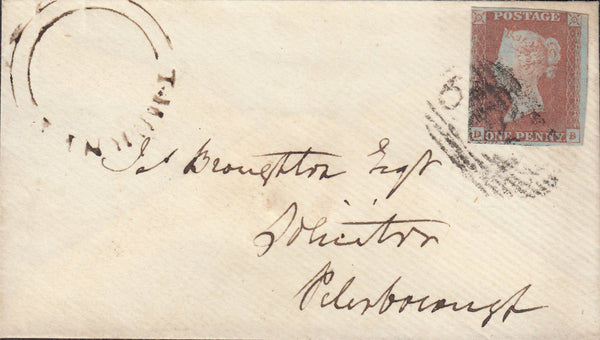 POSTAGE
D ONE PENNY B
Jas Broughton Esqr
Solicitor
Peterborough